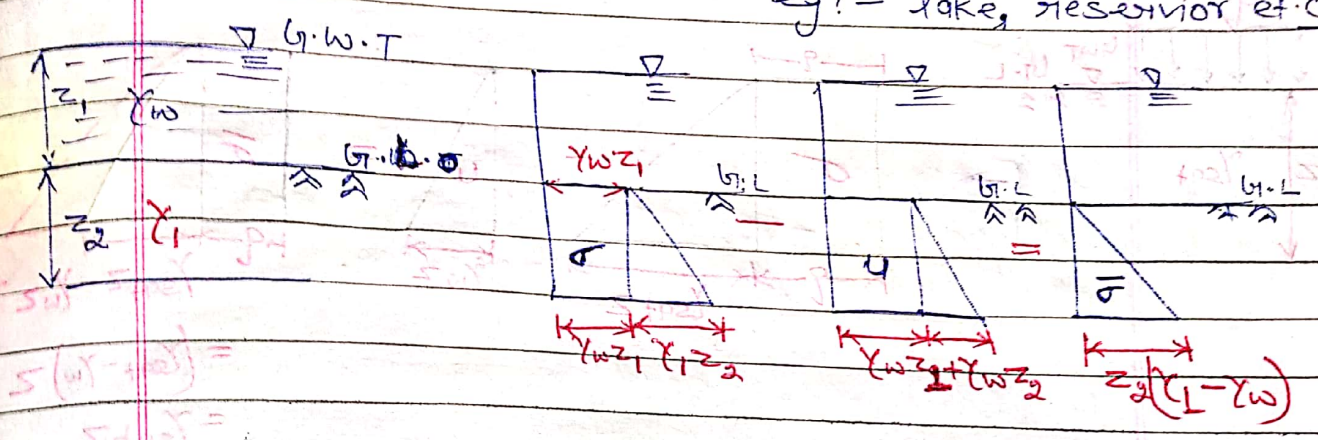 eg:- lake, reservior et.c
G.W.T
Z₁
γw
Z₂
γ₁
γwZ₁
G.L
σ
γwZ₁ γ₁Z₂
−
G.L
u
γwZ1+γwZ₂
=
G.L
σ̅
Z₂(γ1−γw)